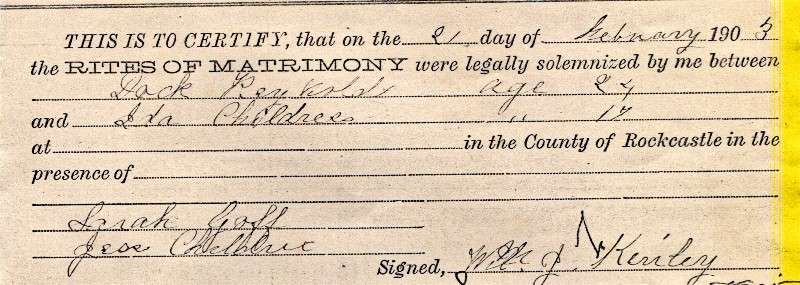 THIS IS TO CERTIFY, that on the 21 day of February 1903
the RITES OF MATRIMONY were legally solemnized by me between
Dock Reynolds age 24
and Ida Childress " 17
at in the County of Rockcastle in the
presence of
Sarah Goff
Jess
Signed, Wm. J. Kerley